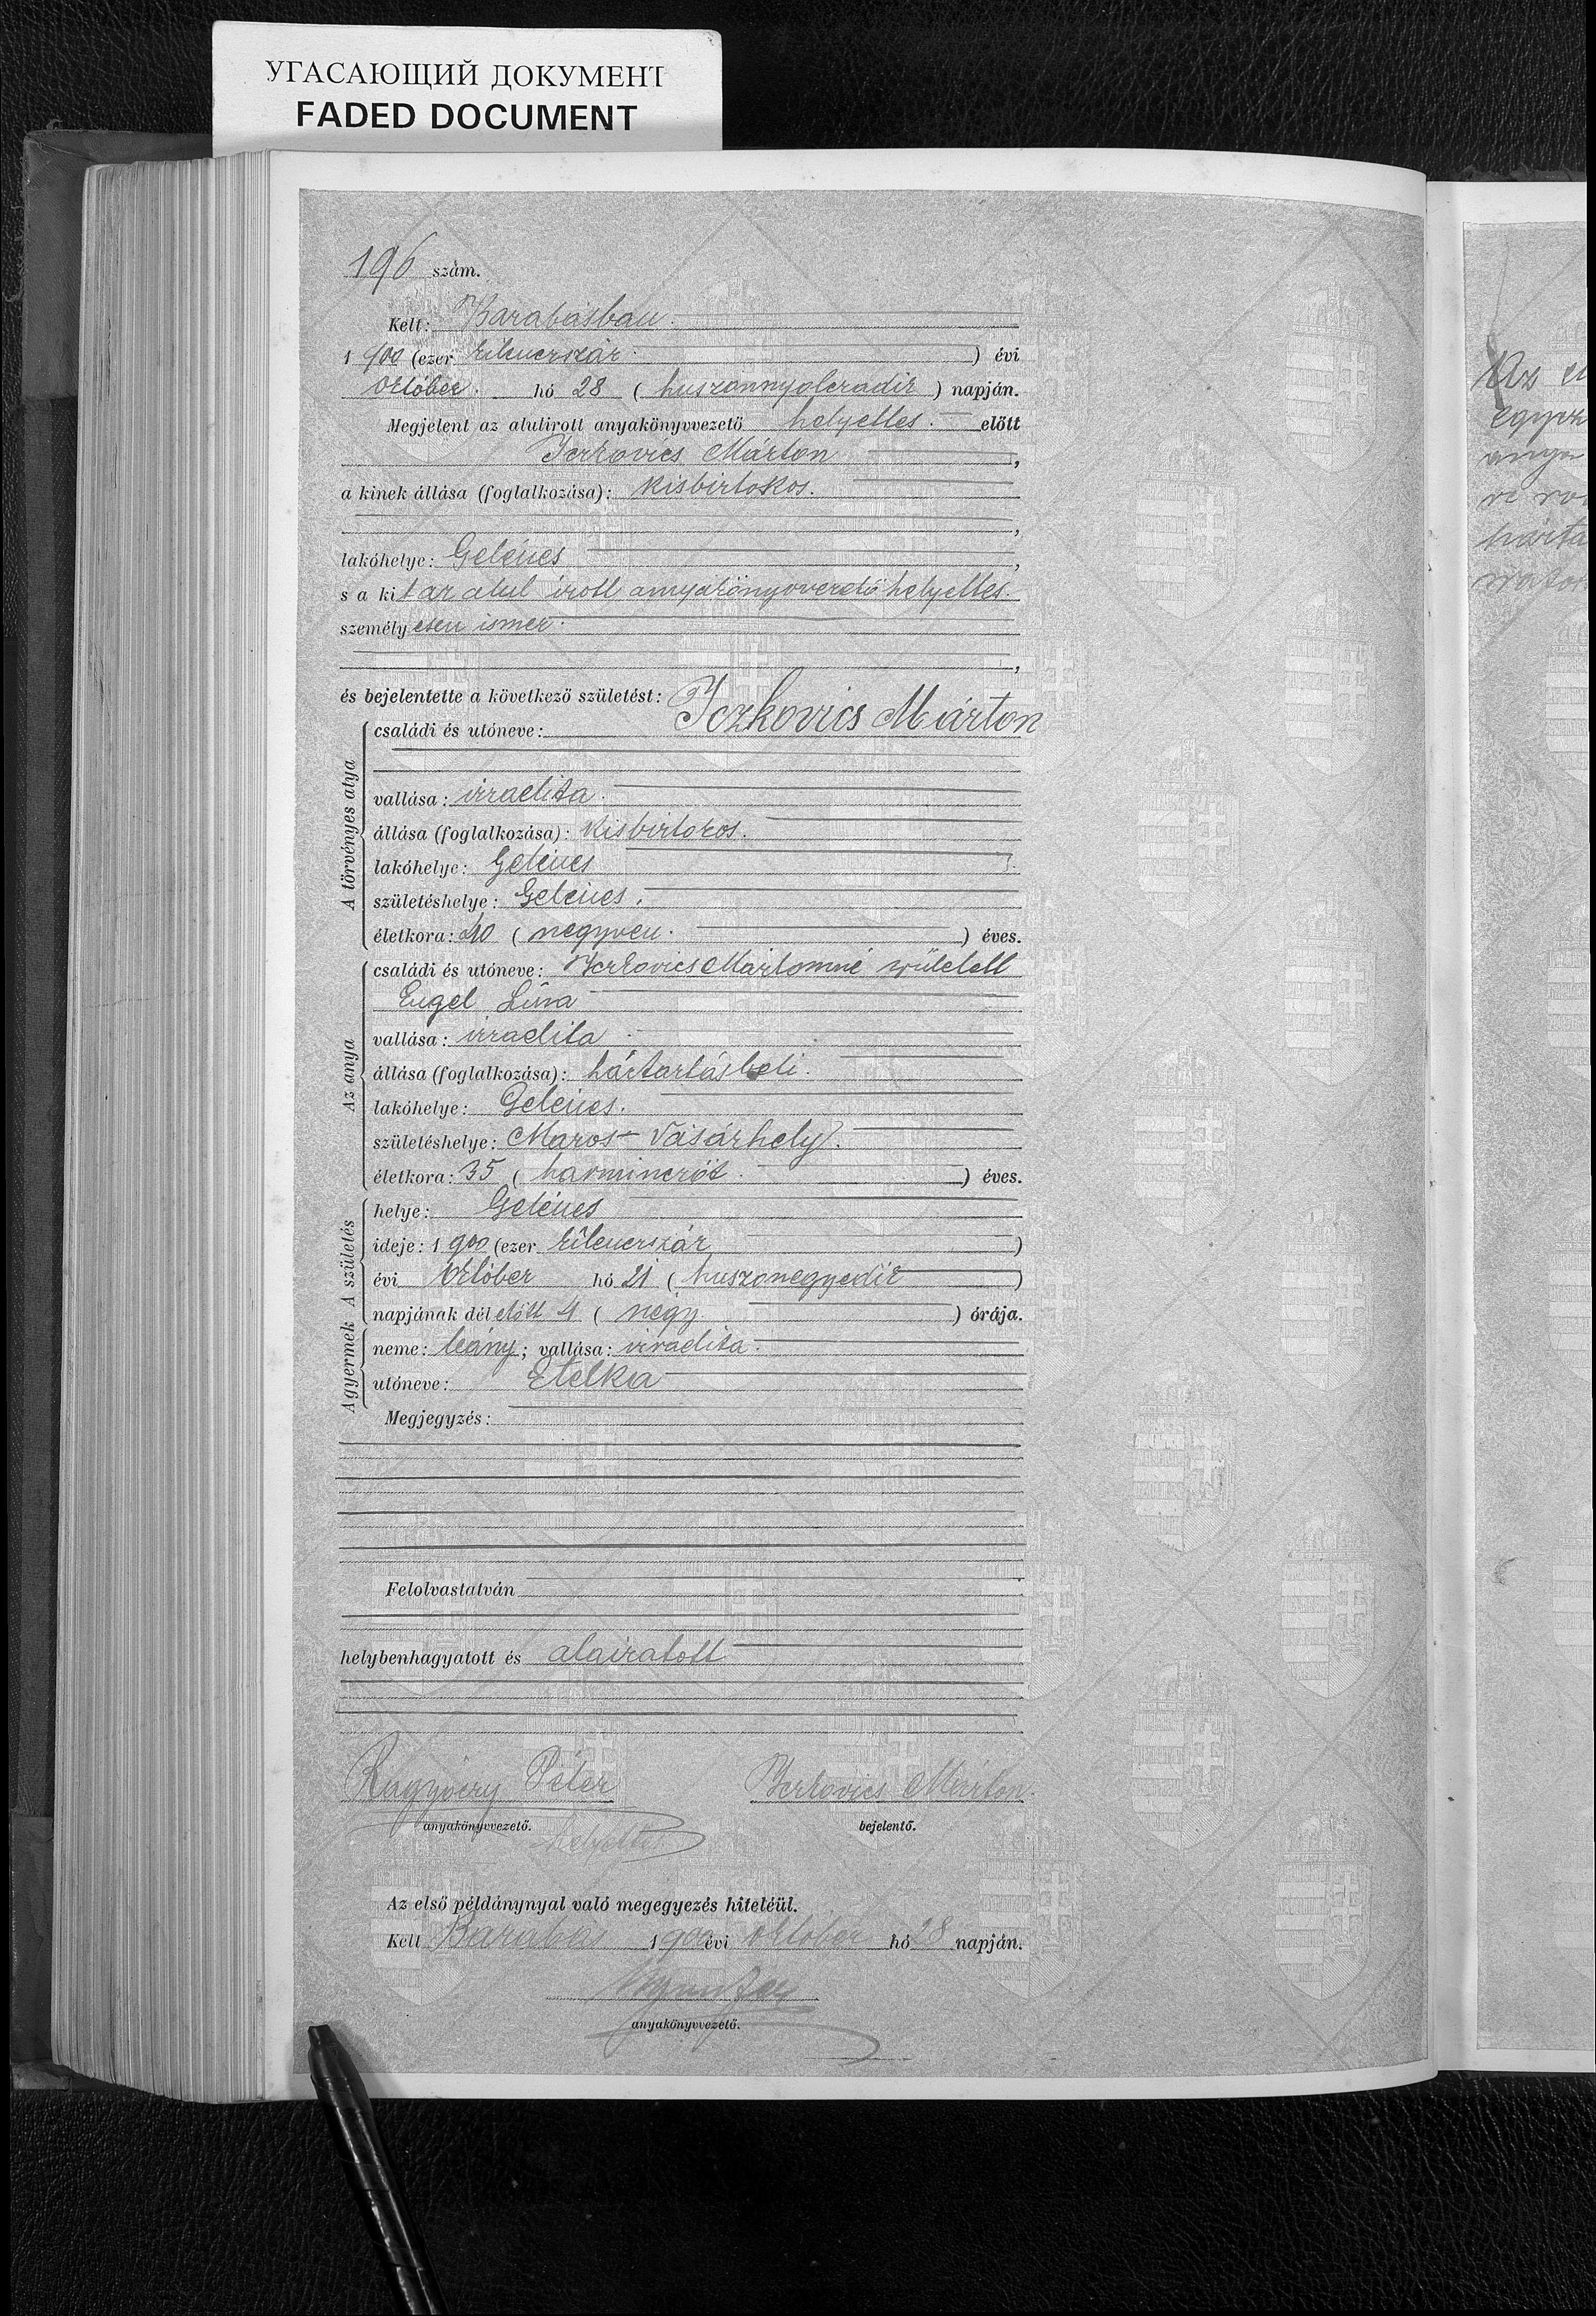 УГАСАЮЩИЙ ДОКУМЕНТ
FADED DOCUMENT
196 szám.
Kelt: Barabásban
1 900 (ezer kilencszáz ) évi
október hó 28 ( huszonnyolczadik ) napján.
Megjelent az alulirott anyakönyvvezető helyettes előtt
Iczkovics Márton ,
a kinek állása (foglalkozása): kisbirtokos.
,
lakóhelye: Gelénes ,
s a kit az alul irott anyakönyvvezető helyettes
személyesen ismer
,
és bejelentette a következő születést:
A törvényes atya
családi és utóneve: Iczkovics Márton
vallása: izraelita
állása (foglalkozása): kisbirtokos.
lakóhelye: Gelénes
születéshelye: Gelénes.
életkora: 40 ( negyven ) éves.
Az anya
családi és utóneve: Iczkovics Mártonné született
Engel Lina
vallása: izraelita
állása (foglalkozása): háztartásbeli.
lakóhelye: Gelénes.
születéshelye: Maros-Vásárhely.
életkora: 35 ( harminczöt ) éves.
A születés
helye: Gelénes
ideje: 1 900 (ezer kilencszáz )
évi október hó 21 ( huszonegyedik )
napjának délelőtt 4 ( négy ) órája.
A gyermek
neme: leány; vallása: izraelita
utóneve: Etelka
Megjegyzés:
Felolvastatván
helybenhagyatott és aláiratott
Péter
Iczkovics Márton
anyakönyvvezető. helyettes
bejelentő.
Az első példánynyal való megegyezés hiteléül.
Kelt Barabás 1 900 évi október hó 28 napján.
anyakönyvvezető.
Az